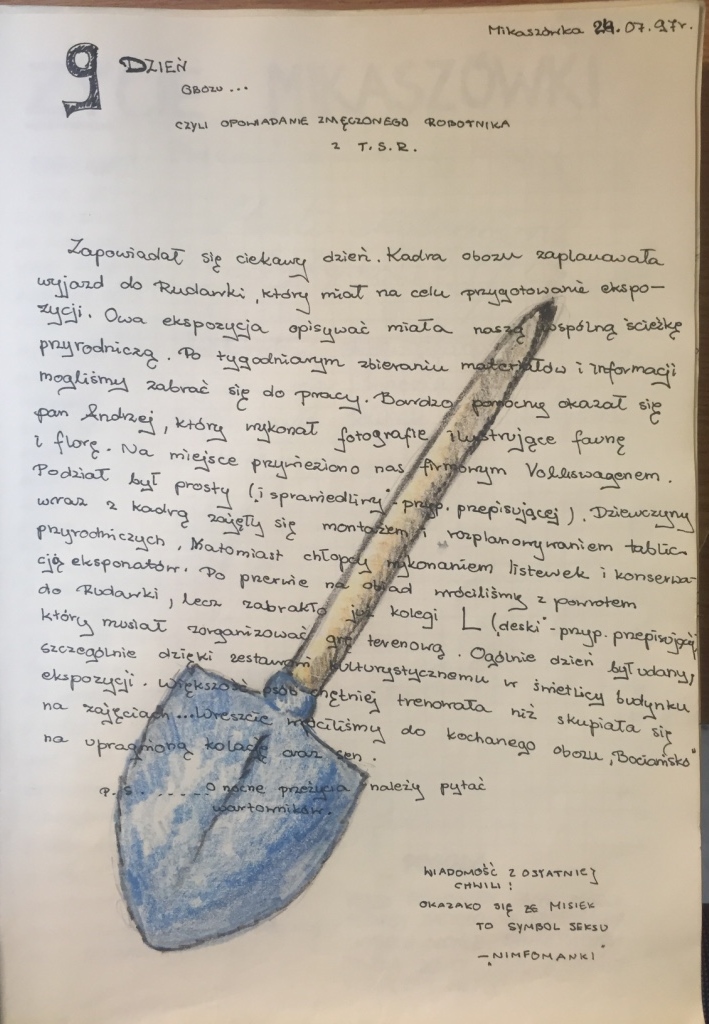 Mikaszówka 24.07.97r.
9 DZIEŃ
OBOZU ...
CZYLI OPOWIADANIE ZMĘCZONEGO ROBOTNIKA
Z T.S.R.
Zapowiadał się ciekawy dzień. Kadra obozu zaplanowała
wyjazd do Rudawki, który miał na celu przygotowanie ekspo-
zycji. Owa ekspozycja opisywać miała naszą wspólną ścieżkę
przyrodniczą. Po tygodniowym zbieraniu materiałów i informacji
mogliśmy zabrać się do pracy. Bardzo pomocny okazał się
pan Andrzej, który wykonał fotografie ilustrujące faunę
i florę. Na miejsce przywieziono nas firmowym Volkswagenem.
Podział był prosty (i sprawiedliwy" - przyp. przepisującej). Dziewczyny
wraz z kadrą zajęły się montażem i rozplanowywaniem tablic
przyrodniczych, Natomiast chłopcy wykonaniem listewek i konserwa-
cją eksponatów. Po przerwie na obiad wróciliśmy z powrotem
do Rudawki, lecz zabrakło już kolegi L (deski" - przyp. przepisującej)
który musiał zorganizować grę terenową. Ogólnie dzień był udany,
szczególnie dzięki zestawom kulturystycznemu w świetlicy budynku
ekspozycji. Większość osób chętniej trenowała niż skupiała się
na zajęciach ... Wreszcie wróciliśmy do kochanego obozu „Bociańsko"
na upragnioną kolację oraz sen.
P.S. ...... O nocne przeżycia należy pytać
wartowników.
WIADOMOŚĆ Z OSTATNIEJ
CHWILI!
OKAZAKO SIĘ ZE MISIEK
TO SYMBOL SEKSU
- „NIMFOMANKI"